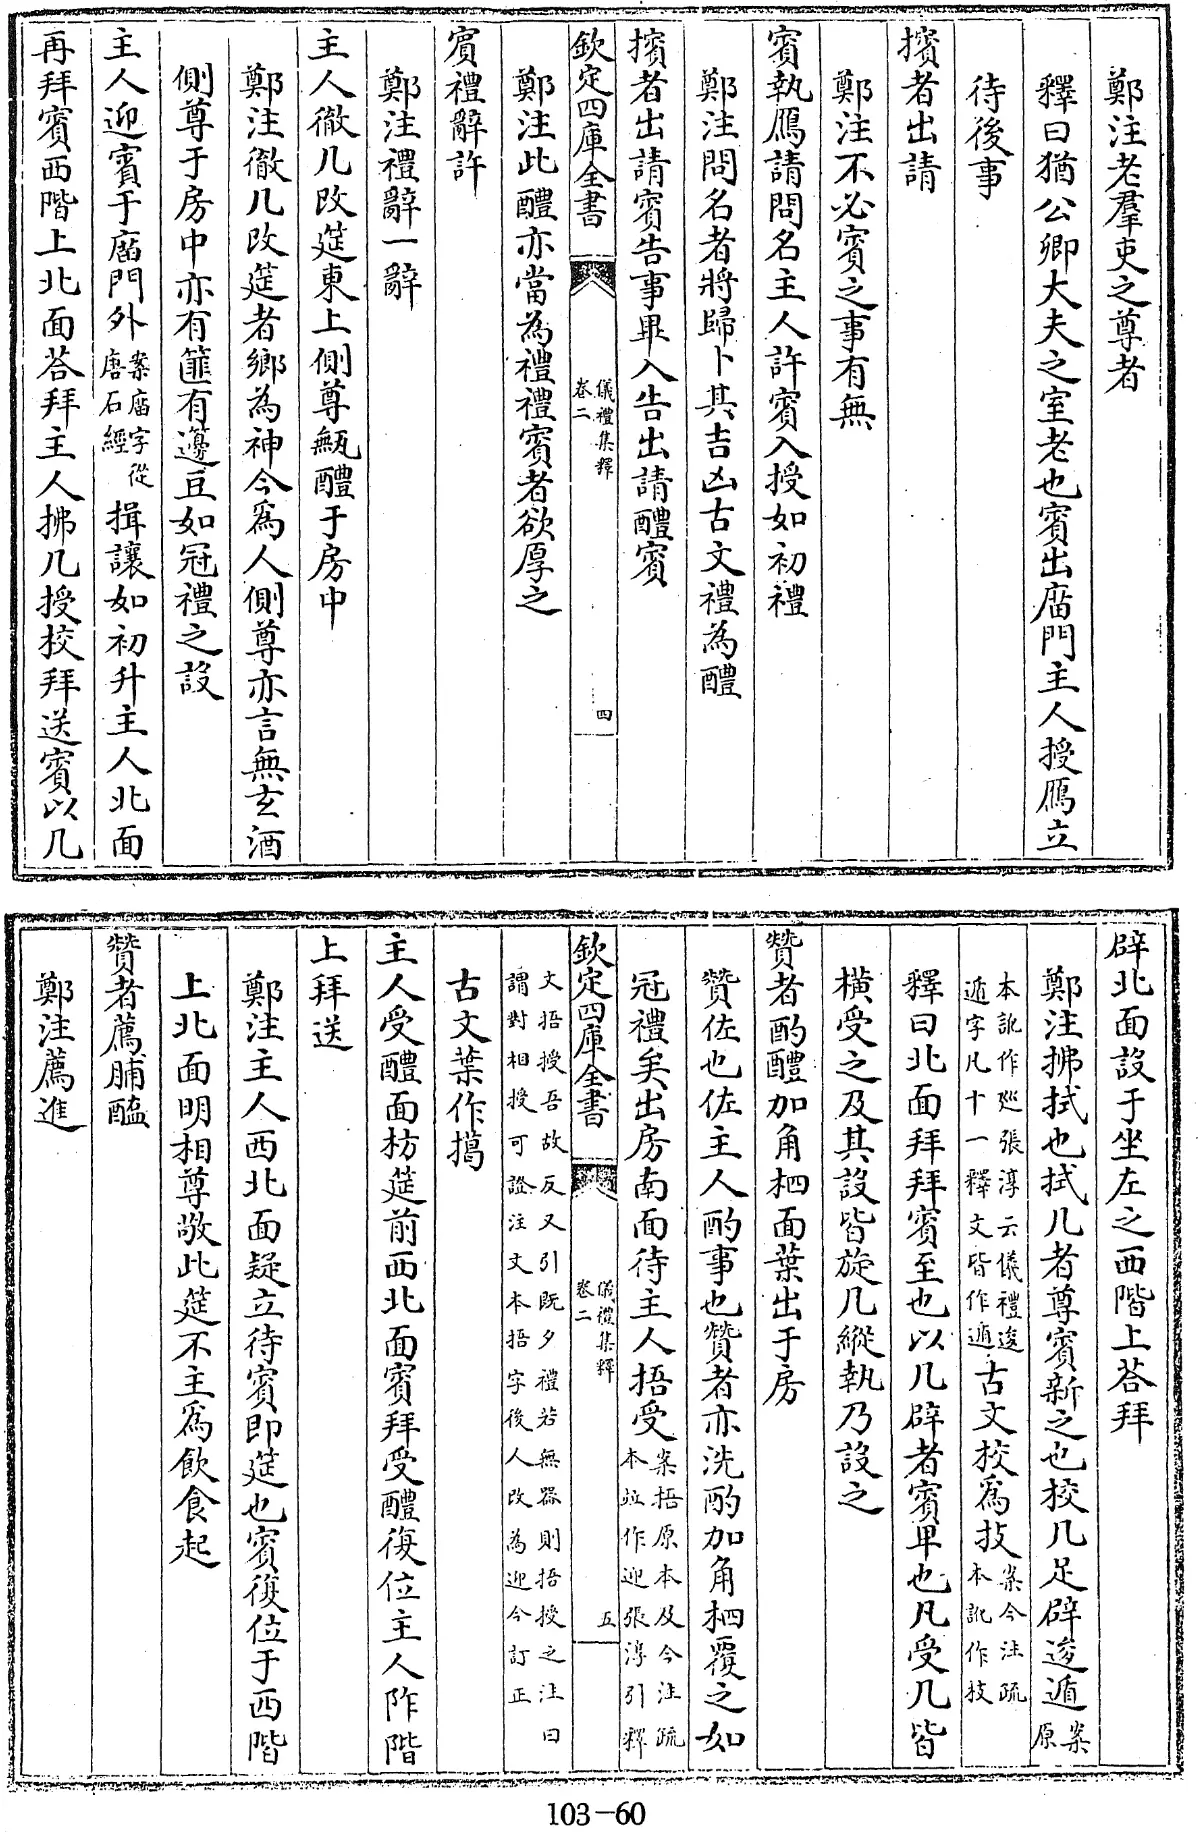 鄭注老羣吏之尊者
釋曰猶公卿大夫之室老也賓出庿門主人授鴈立
待後事
擯者出請
鄭注不必賓之事有無
賓執鴈請問名主人許賓入授如初禮
鄭注問名者將歸卜其吉凶古文禮為醴
擯者出請賓告事畢入告出請醴賓
欽定四庫全書
儀禮集釋
卷二
四
鄭注此醴亦當為禮禮賓者欲厚之
賓禮辭許
鄭注禮辭一辭
主人徹几改筵東上側尊甒醴于房中
鄭注徹几改筵者鄉為神今爲人側尊亦言無玄酒
側尊于房中亦有篚有籩豆如冠禮之設
主人迎賓于庿門外案庿字從唐石經揖讓如初升主人北面
再拜賓西階上北面荅拜主人拂几授校拜送賓以几
辟北面設于坐左之西階上荅拜
鄭注拂拭也拭几者尊賓新之也校几足辟逡遁案原
本訛作廵張淳云儀禮逡遁字凡十一釋文皆作遁古文校爲技案今注疏本訛作枝
釋曰北面拜拜賓至也以几辟者賓卑也凡受几皆
橫受之及其設皆旋几縱執乃設之
贊者酌醴加角柶面葉出于房
贊佐也佐主人酌事也贊者亦洗酌加角柶覆之如
冠禮矣出房南面待主人捂受案捂原本及今注疏本竝作迎張淳引釋
欽定四庫全書
儀禮集釋
卷二
五
文捂授吾故反又引既夕禮若無器則捂授之注曰謂對相授可證注文本捂字後人改為迎今訂正
古文葉作擖
主人受醴面枋筵前西北面賓拜受醴復位主人阼階
上拜送
鄭注主人西北面疑立待賓即筵也賓復位于西階
上北面明相尊敬此筵不主爲飲食起
贊者薦脯醢
鄭注薦進
103-60